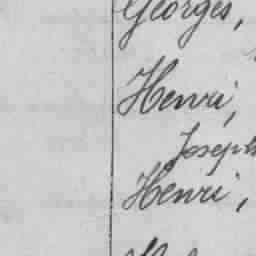 Georges,
Henri,
Joseph
Henri,